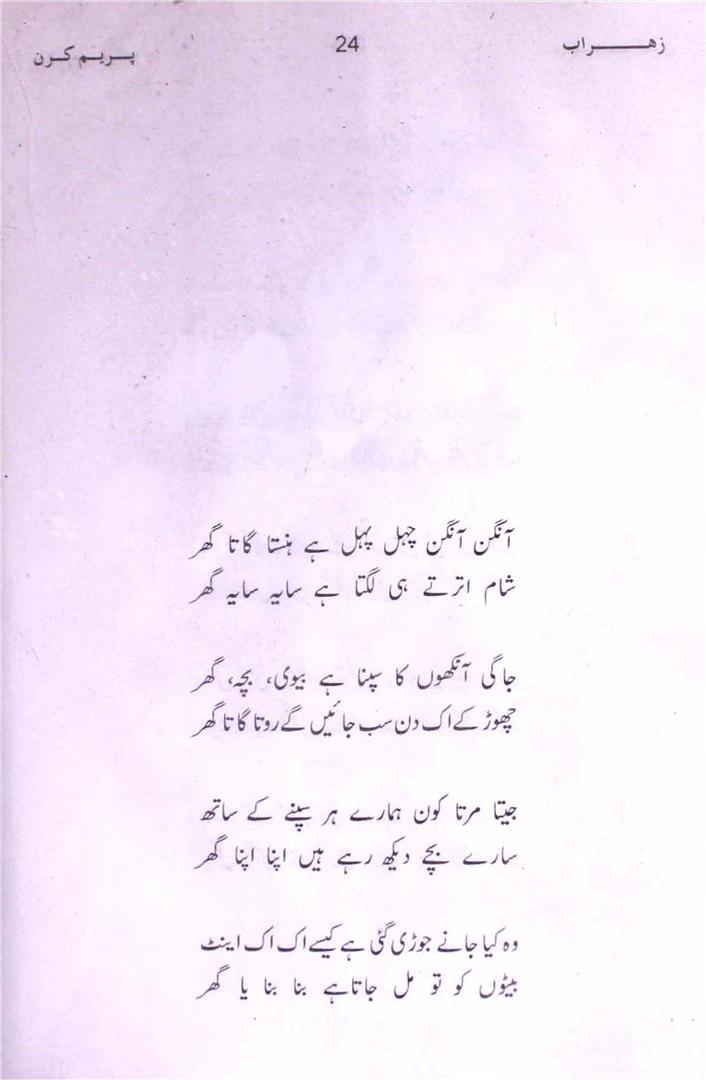 زهراب 24 پریم کرن
آنگن آنگن چہل پہل ہے ہنستا گاتا گھر
شام اترتے ہی لگتا ہے سایہ سایہ گھر
جاگی آنکھوں کا سپنا ہے بیوی، بچہ، گھر
چھوڑ کے اک دن سب جائیں گے روتا گاتا گھر
جیتا مرتا کون ہمارے ہر سپنے کے ساتھ
سارے بچے دیکھ رہے ہیں اپنا اپنا گھر
وہ کیا جانے جوڑی گئی ہے کیسے اک اک اینٹ
بیٹوں کو تو مل جاتا ہے بنا بنا یا گھر